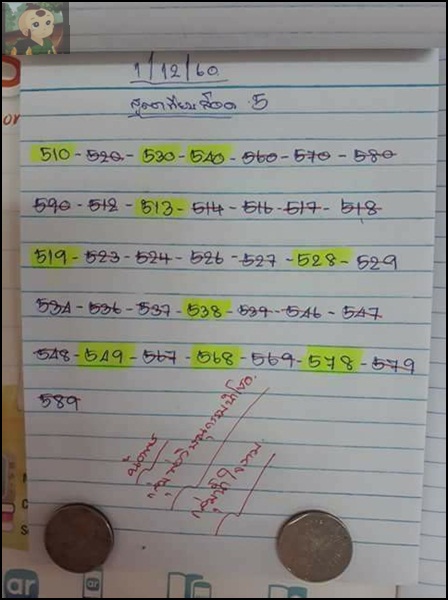 1/12/60
5
510 - 520 - 530 - 540 - 560 - 570 - 580
590 - 512 - 513 - 514 - 516 - 517 - 518
519 - 523 - 524 - 526 - 527 - 528 - 529
534 - 536 - 537 - 538 - 539 - 546 - 547
548 - 549 - 567 - 568 - 569 - 578 - 579
589
or
ar
ar